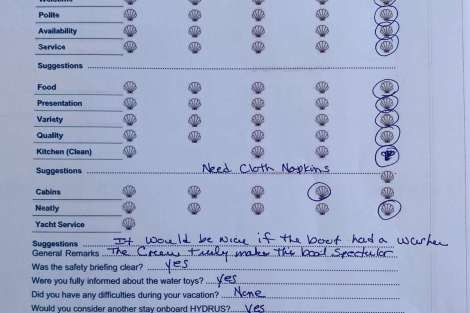 Welcome
Polite
Availability
Service
Suggestions
Food
Presentation
Variety
Quality
Kitchen (Clean)
Suggestions Need Cloth Napkins
Cabins
Neatly
Yacht Service
Suggestions It would be nice if the boat had a washer
General Remarks The Crew truly makes the boat Spectacular
Was the safety briefing clear? yes
Were you fully informed about the water toys? yes
Did you have any difficulties during your vacation? None
Would you consider another stay onboard HYDRUS? Yes